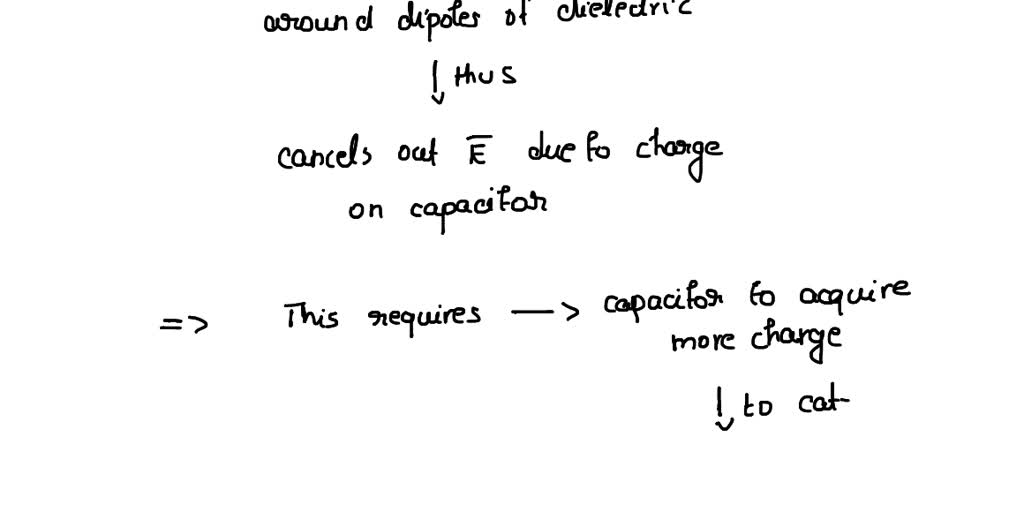 around dipoles of dielectric
↓ thus
cancels out E̅ due to charge
on capacitor
=> This requires —> capacitor to acquire
more charge
↓ to cat